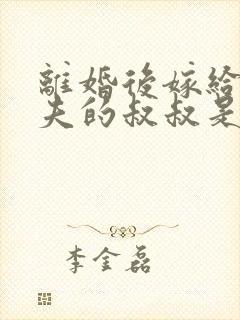 離婚後嫁給
夫的叔叔是
李金磊